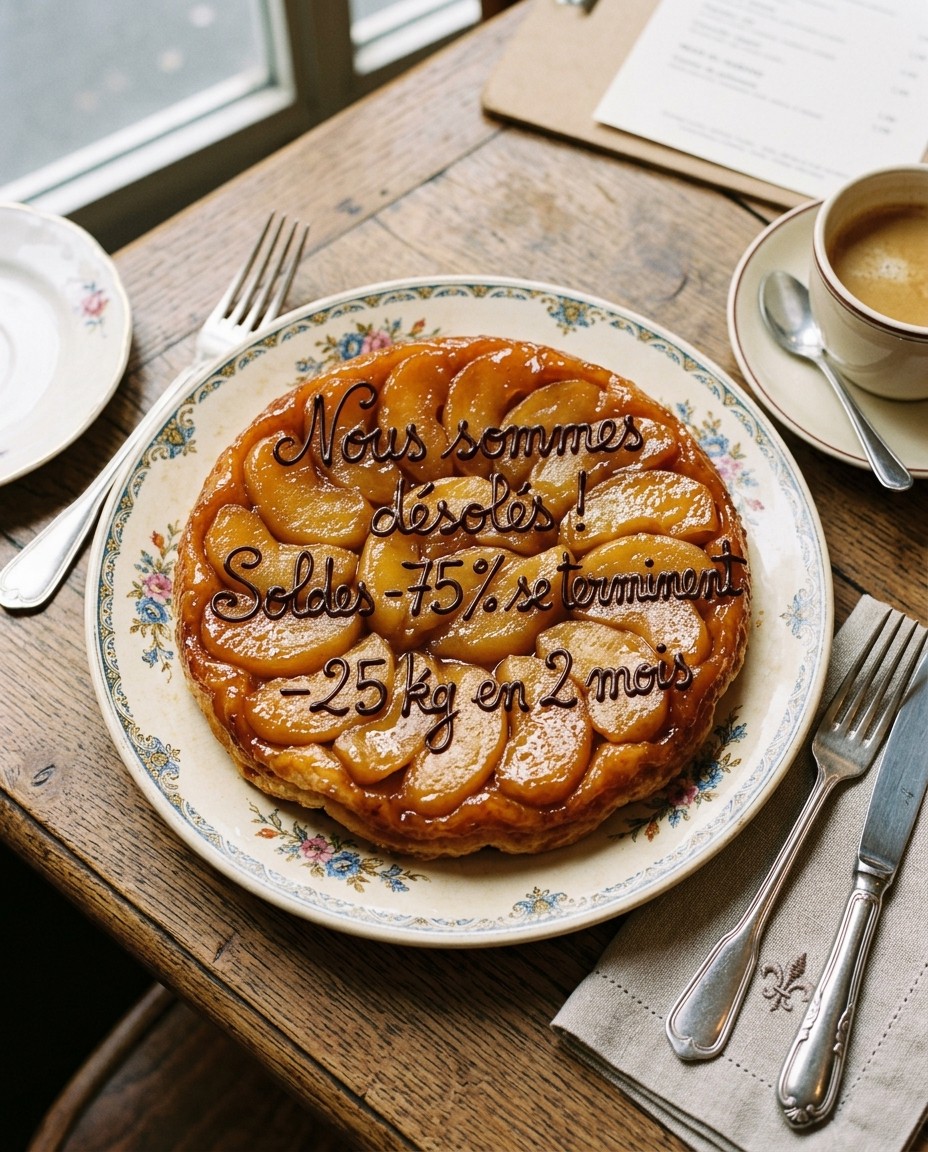 Nous sommes
désolés !
Soldes -75% se terminent
-25 kg en 2 mois